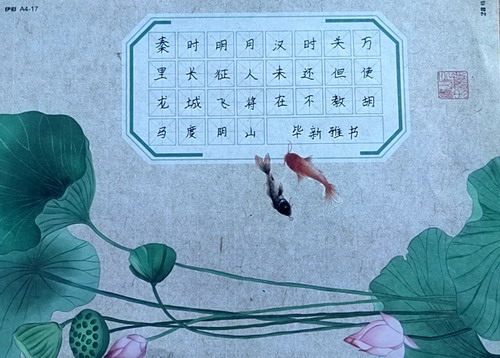 A4-17
秦时明月汉时关万
里长征人未还但使
龙城飞将在不教胡
马度阴山 毕新雅书